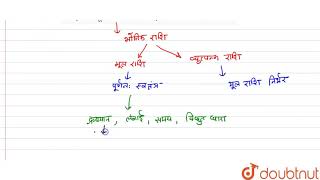 भौतिक राशि
मूल राशि व्युत्पन्न राशि
पूर्णतः स्वतंत्र मूल राशि निर्भर
द्रव्यमान, लंबाई, समय, विद्युत धारा
doubtnut